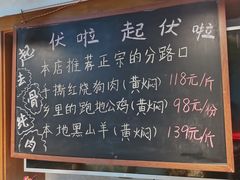 伏啦 起伏啦
本店推荐正宗的分路口
手撕红烧狗肉(黄焖)118元/斤
乡里的跑地公鸡(黄焖)98元/份
本地黑山羊(黄焖)139元/斤
去骨
肉